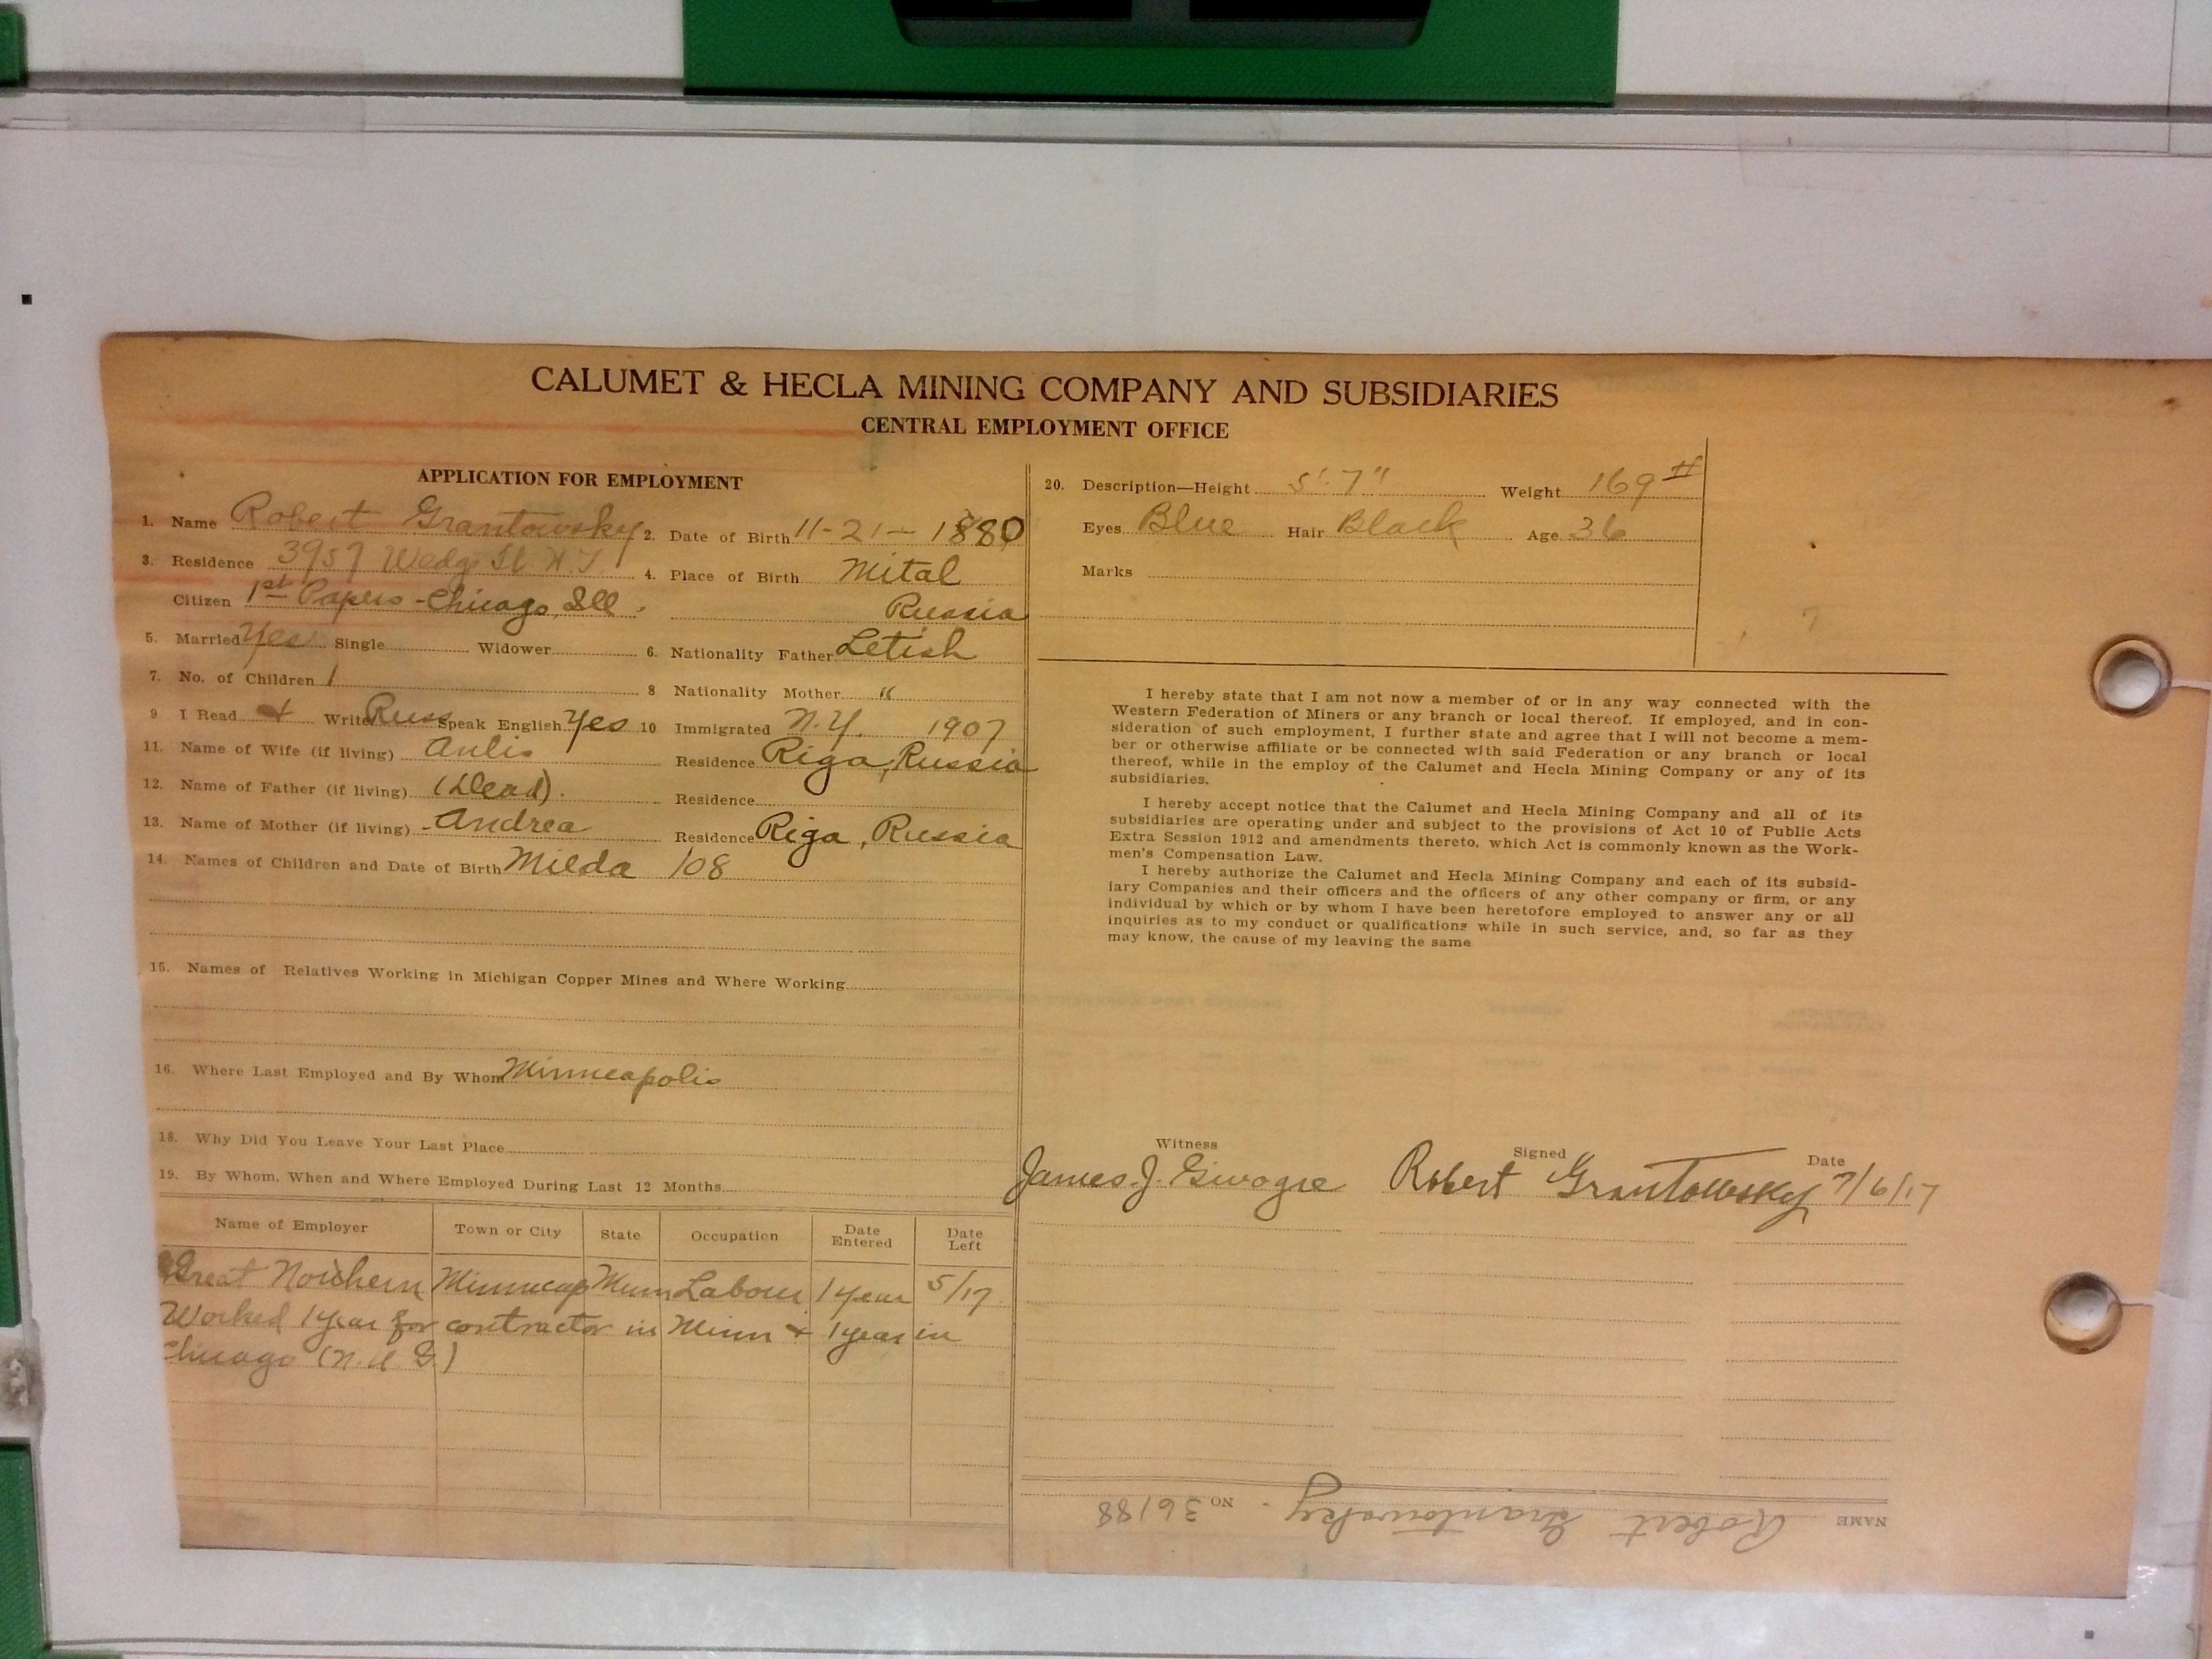 CALUMET & HECLA MINING COMPANY AND SUBSIDIARIES
CENTRAL EMPLOYMENT OFFICE
APPLICATION FOR EMPLOYMENT
1. Name Robert Grantowsky 2. Date of Birth 11-21-1880
3. Residence 3957 St. 4. Place of Birth Mital
Citizen 1st Papers - Chicago, Ill. Russia
5. Married Yes Single Widower 6. Nationality Father Letish
7. No. of Children 1 8 Nationality Mother "
9 I Read + Write Russ Speak English Yes 10 Immigrated N.Y. 1907
11. Name of Wife (if living) Residence Riga, Russia
12. Name of Father (if living) (Dead). Residence
13. Name of Mother (if living) Andrea Residence Riga, Russia
14. Names of Children and Date of Birth Milda 108
15. Names of Relatives Working in Michigan Copper Mines and Where Working
16. Where Last Employed and By Whom Minneapolis
18. Why Did You Leave Your Last Place
19. By Whom, When and Where Employed During Last 12 Months
Name of Employer Town or City State Occupation Date Entered Date Left
Great Northern Minneap Minn Labour 1 year 5/17
Worked 1 year for contractor in Minn + 1 year in
Chicago
20. Description—Height 5' 7" Weight 169 #
Eyes Blue Hair Black Age 36
Marks
I hereby state that I am not now a member of or in any way connected with the
Western Federation of Miners or any branch or local thereof. If employed, and in con-
sideration of such employment, I further state and agree that I will not become a mem-
ber or otherwise affiliate or be connected with said Federation or any branch or local
thereof, while in the employ of the Calumet and Hecla Mining Company or any of its
subsidiaries.
I hereby accept notice that the Calumet and Hecla Mining Company and all of its
subsidiaries are operating under and subject to the provisions of Act 10 of Public Acts
Extra Session 1912 and amendments thereto, which Act is commonly known as the Work-
men's Compensation Law.
I hereby authorize the Calumet and Hecla Mining Company and each of its subsid-
iary Companies and their officers and the officers of any other company or firm, or any
individual by which or by whom I have been heretofore employed to answer any or all
inquiries as to my conduct or qualifications while in such service, and, so far as they
may know, the cause of my leaving the same
Witness Signed Date
James J. Robert Grantowsky 7/6/17
NAME Robert Grantowsky - NO 36188